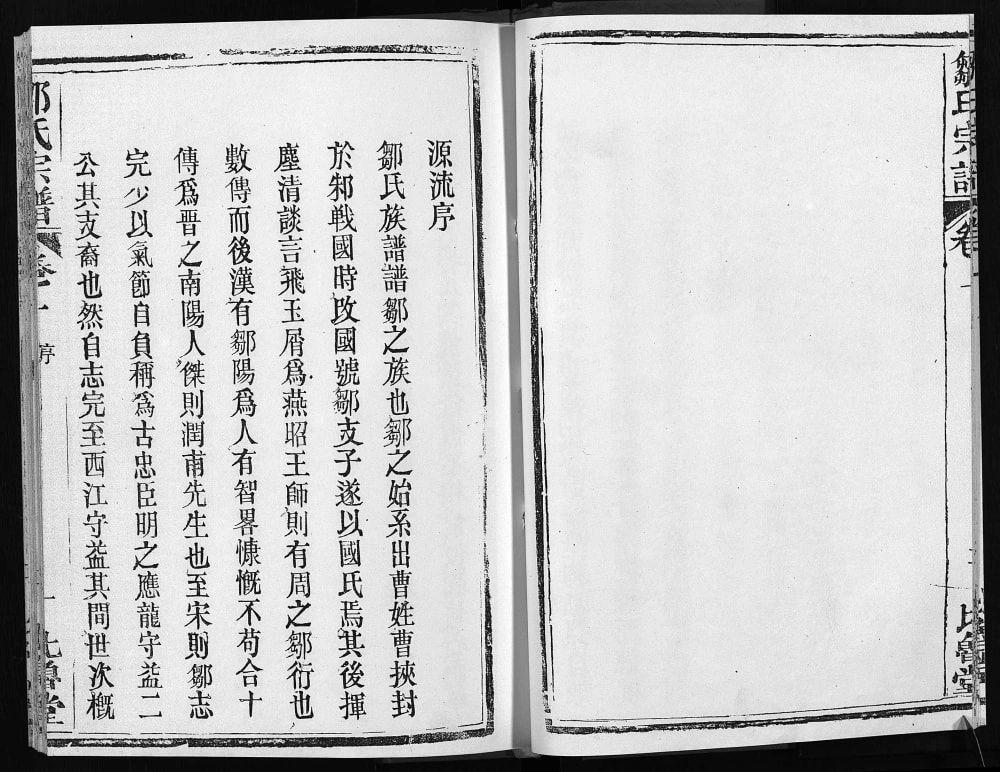 鄒氏宗譜
卷一
比魯堂
源流序
鄒氏族譜譜鄒之族也鄒之始系出曹姓曹挾封
於邾戰國時改國號鄒支子遂以國氏焉其後揮
麈清談言飛玉屑爲燕昭王師則有周之鄒衍也
數傳而後漢有鄒陽爲人有智畧慷慨不苟合十
傳爲晉之南陽人傑則潤甫先生也至宋則鄒志
完少以氣節自負稱爲古忠臣明之應龍守益二
公其支裔也然自志完至西江守益其間世次概
鄒氏宗譜
卷一
序
一
比魯堂